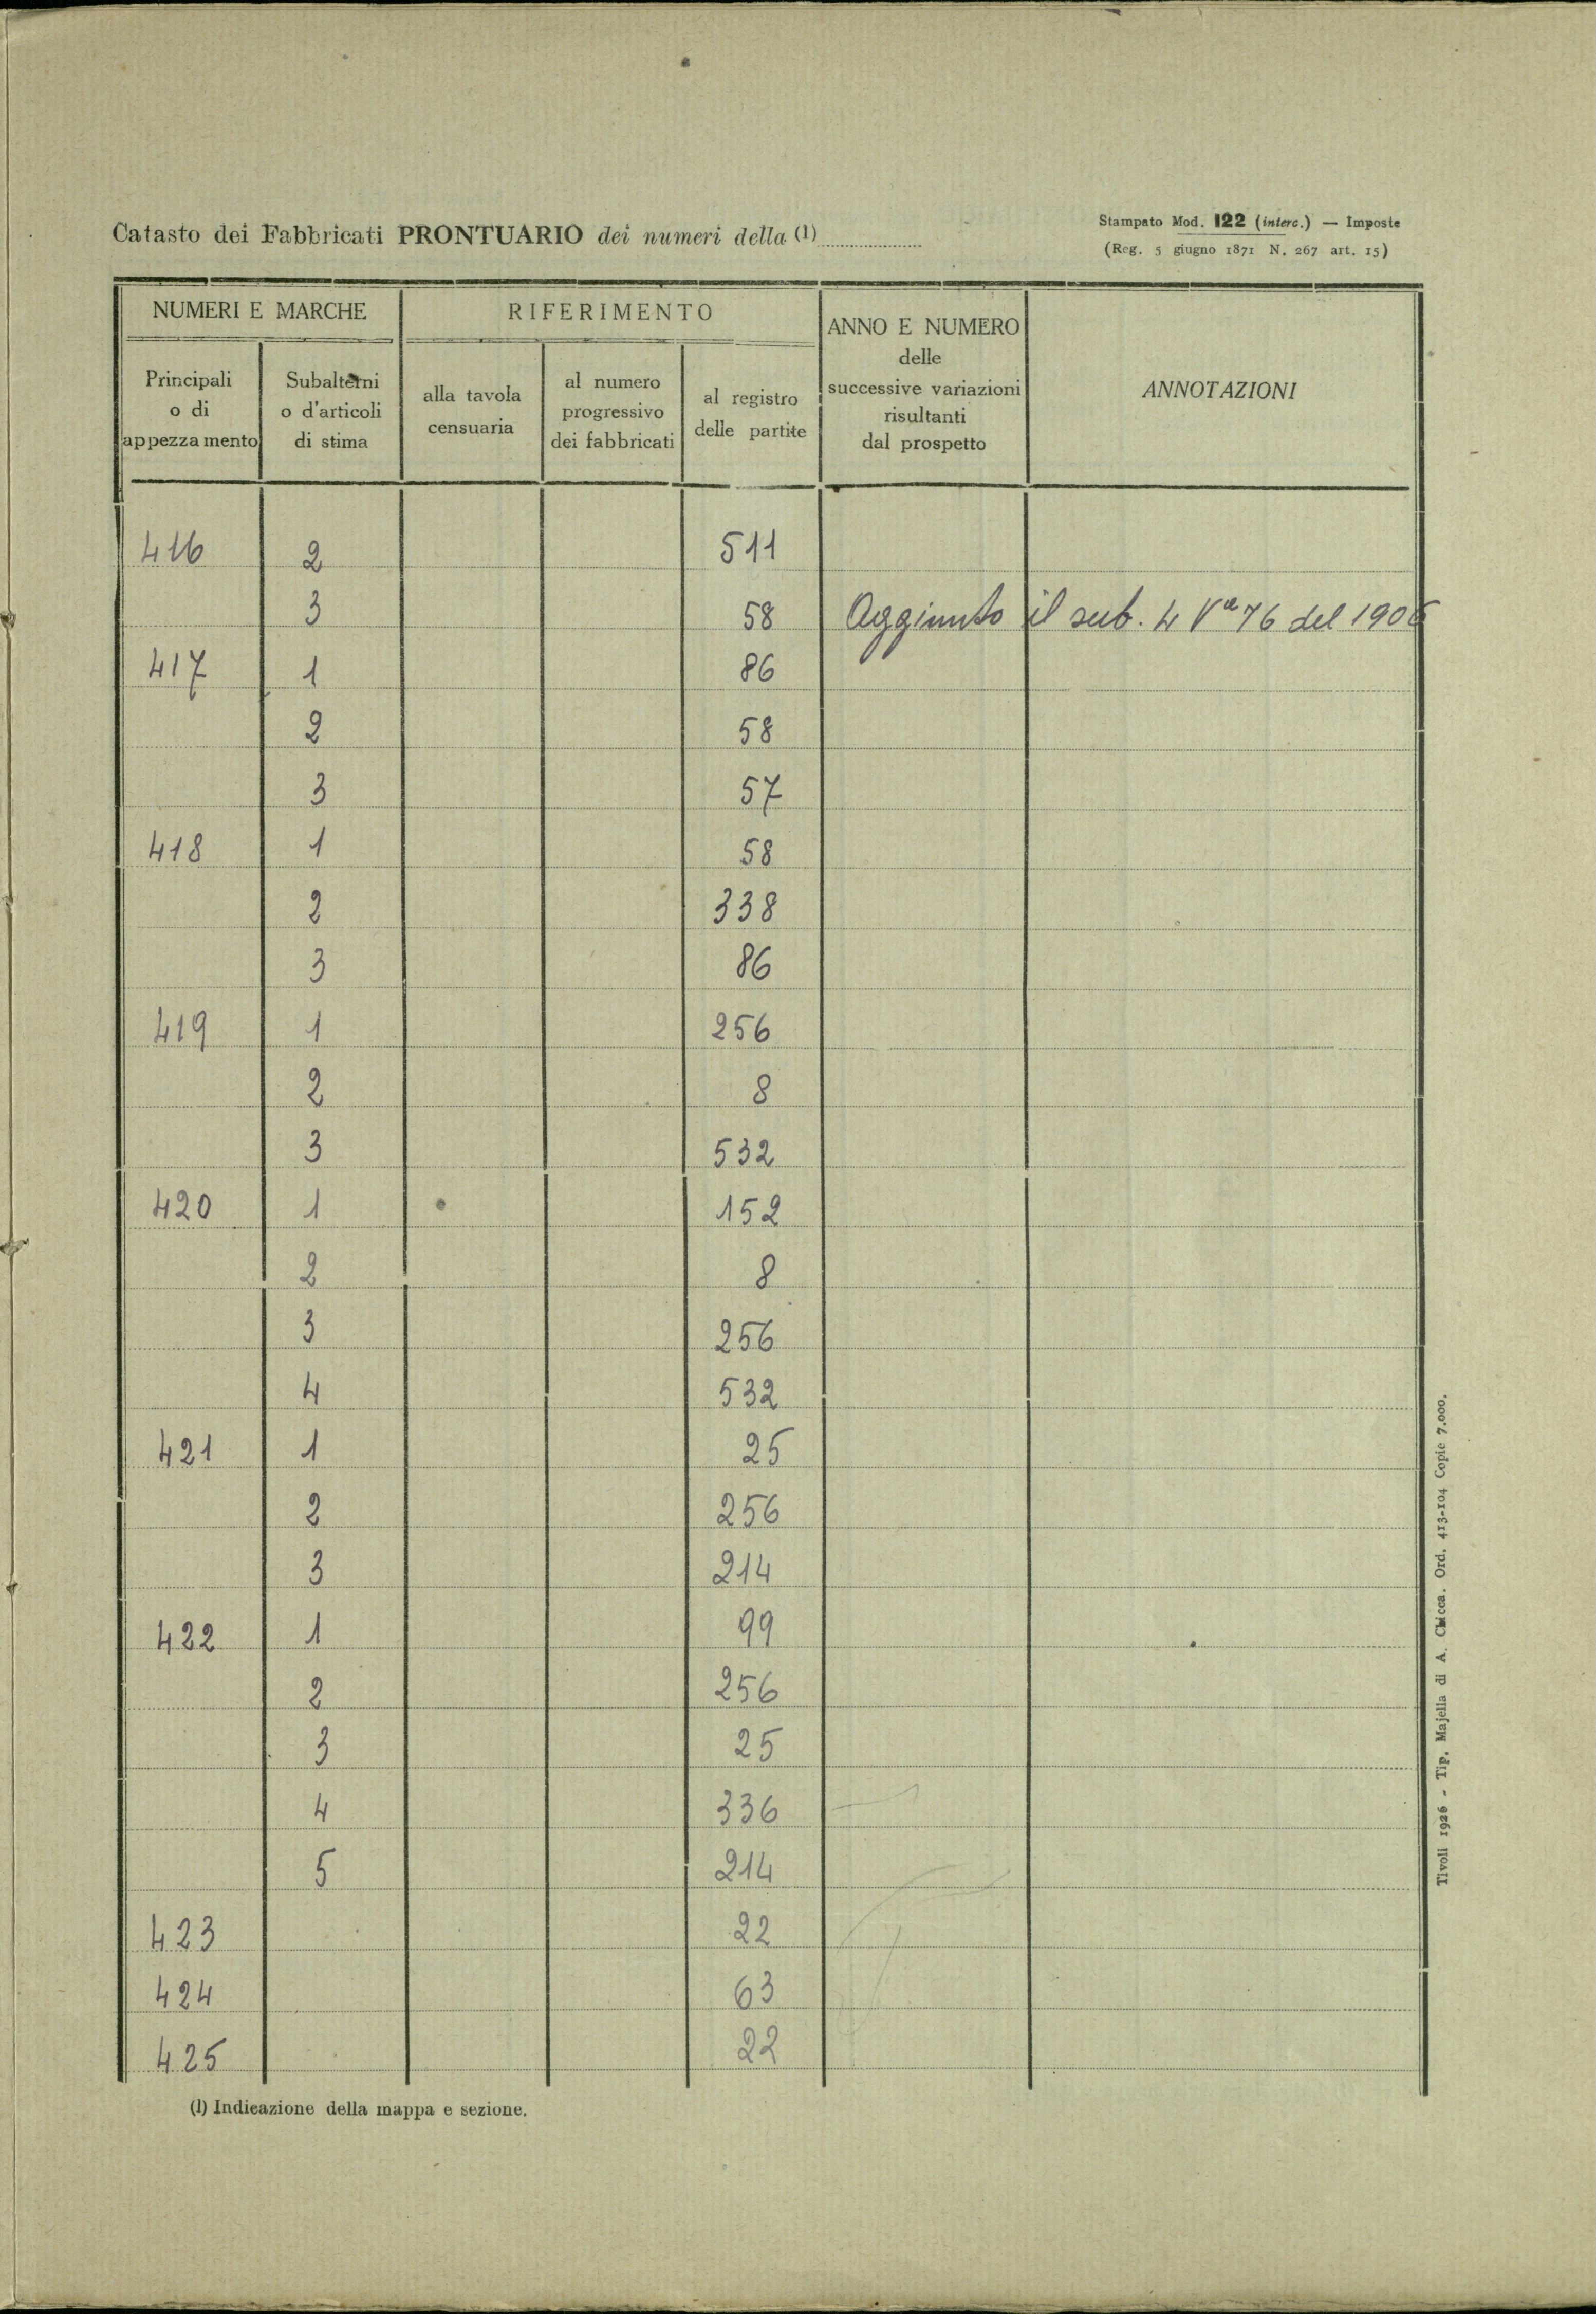 Catasto dei Fabbricati PRONTUARIO dei numeri della (1)
Stampato Mod. 122 (interc.) — Imposte
(Reg. 5 giugno 1871 N. 267 art. 15)
NUMERI E MARCHE
RIFERIMENTO
ANNO E NUMERO
delle
successive variazioni
risultanti
dal prospetto
ANNOTAZIONI
Principali
o di
appezzamento
Subalterni
o d'articoli
di stima
alla tavola
censuaria
al numero
progressivo
dei fabbricati
al registro
delle partite
416 2 511
3 58 Aggiunto il sub. 4 Va 76 del 1906
417 1 86
2 58
3 57
418 1 58
2 338
3 86
419 1 256
2 8
3 532
420 1 152
2 8
3 256
4 532
421 1 25
2 256
3 214
422 1 99
2 256
3 25
4 336
5 214
423 22
424 63
425 22
(1) Indicazione della mappa e sezione.
Tivoli 1926 - Tip. Majella di A. Chicca. Ord. 413-104 Copie 7.000.